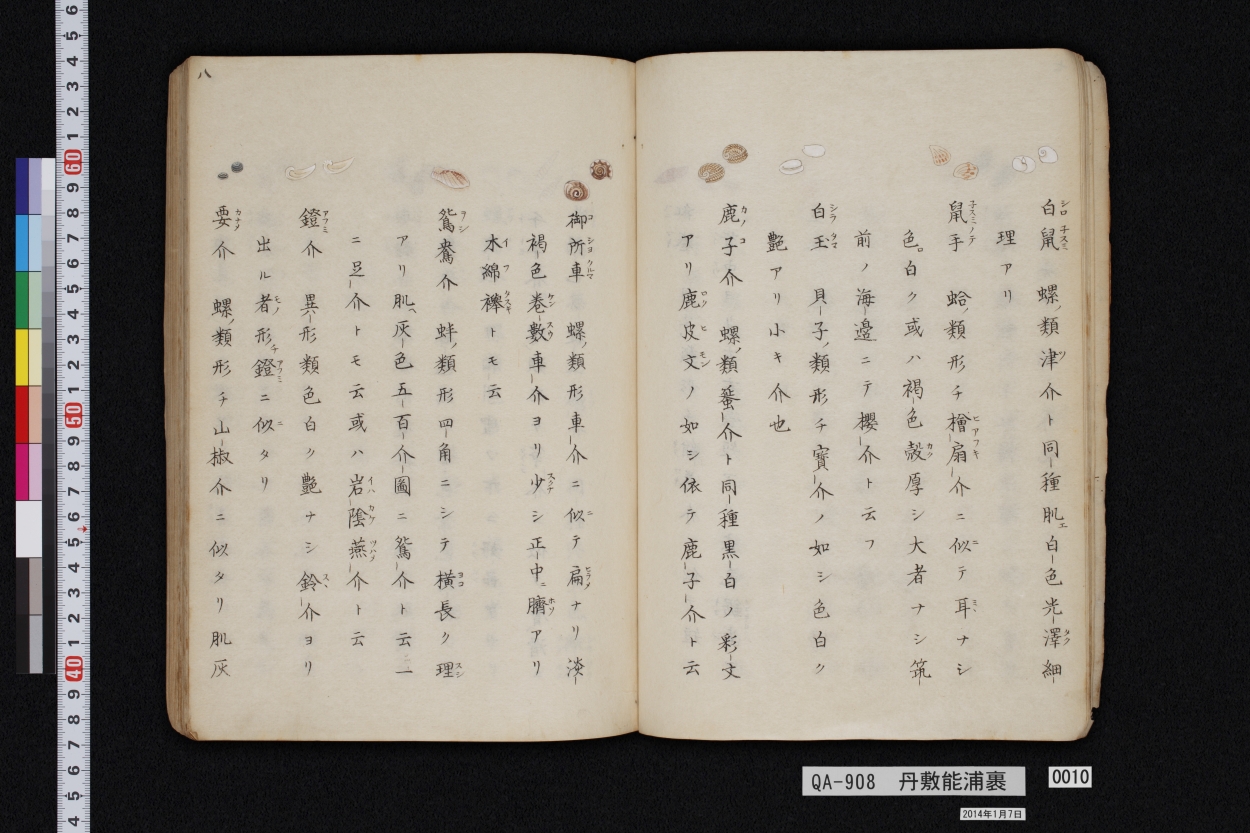 白鼠 螺ノ類津介ト同種肌白色光澤細
理アリ
鼠手 蛤ノ類形チ檜扇介ニ似テ耳ナシ
色白ク或ハ褐色殻厚シ大者ナシ筑
前ノ海邊ニテ櫻介ト云フ
白玉 貝子ノ類形チ寳介ノ如シ色白ク
艶アリ小キ介也
鹿子介 螺ノ類蚕介ト同種黒白ノ彩文
アリ鹿皮文ノ如シ依テ鹿子介ト云
御所車 螺ノ類形車介ニ似テ扁ナリ淡
褐色巻數車介ヨリ少シ正中ニ臍アリ
木綿襷トモ云
鴛鴦介 蚌ノ類形四角ニシテ横長ク理
アリ肌ヘ灰色五百介圖ニ鴛介ト云一
ニ足介トモ云或ハ岩陰燕介ト云
鐙介 異形類色白ク艶ナシ鈴介ヨリ
出ル者形チ鐙ニ似タリ
要介 螺ノ類形チ山椒介ニ似タリ肌灰
八
QA-908 丹敷能浦裹
0010
2014年1月7日